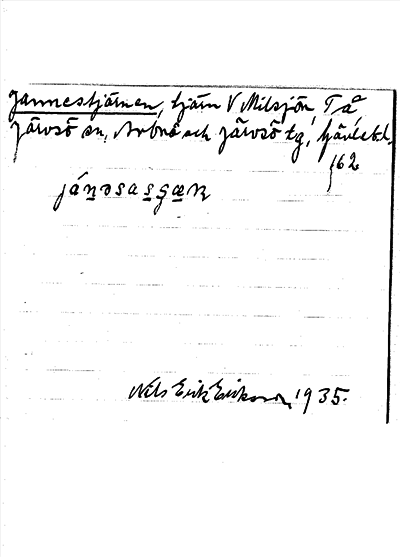 Jannestjärnen, tjärn V Milsjön, Tå
Järvsö sn, Arbrå och Järvsö tg,
162
Nils Erik Eriksson, 1935.